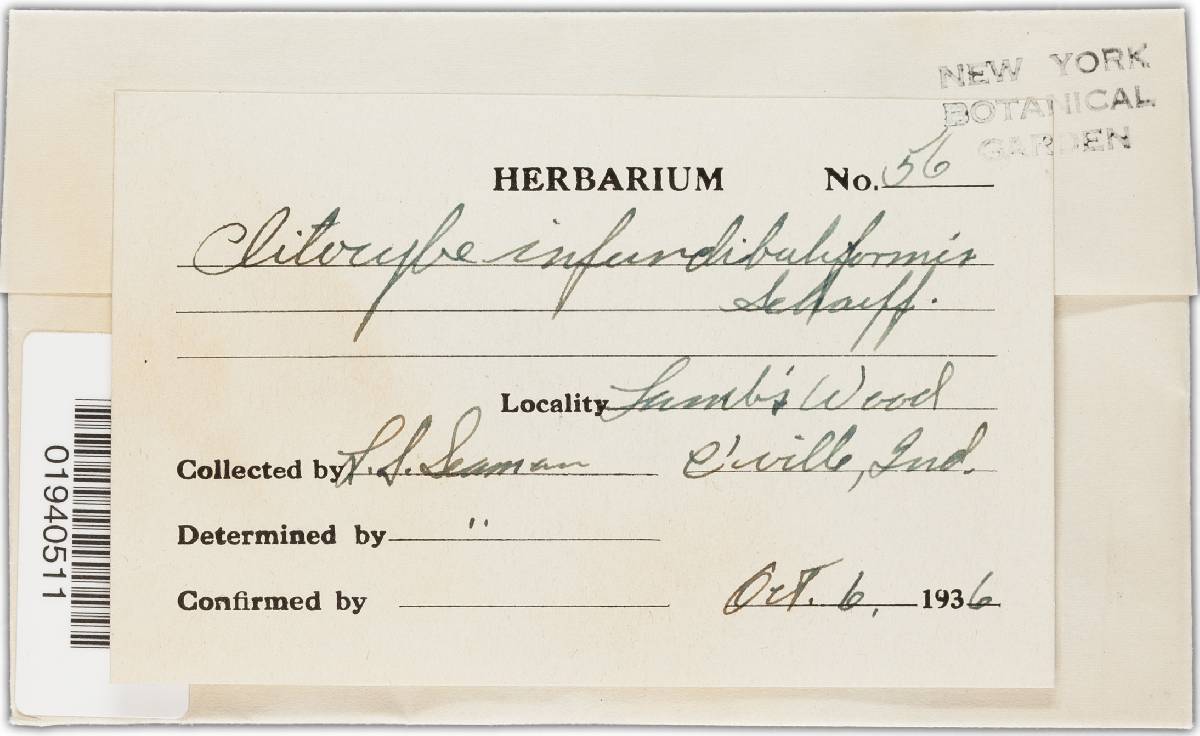 NEW YORK
BOTANICAL
GARDEN
HERBARIUM No. 56
Clitocybe infundibuliformis
Schaeff.
Locality Lamb's Wood
Collected by L.S. Seaman C'ville, Ind.
Determined by "
Confirmed by Oct. 6, 1936
01940511